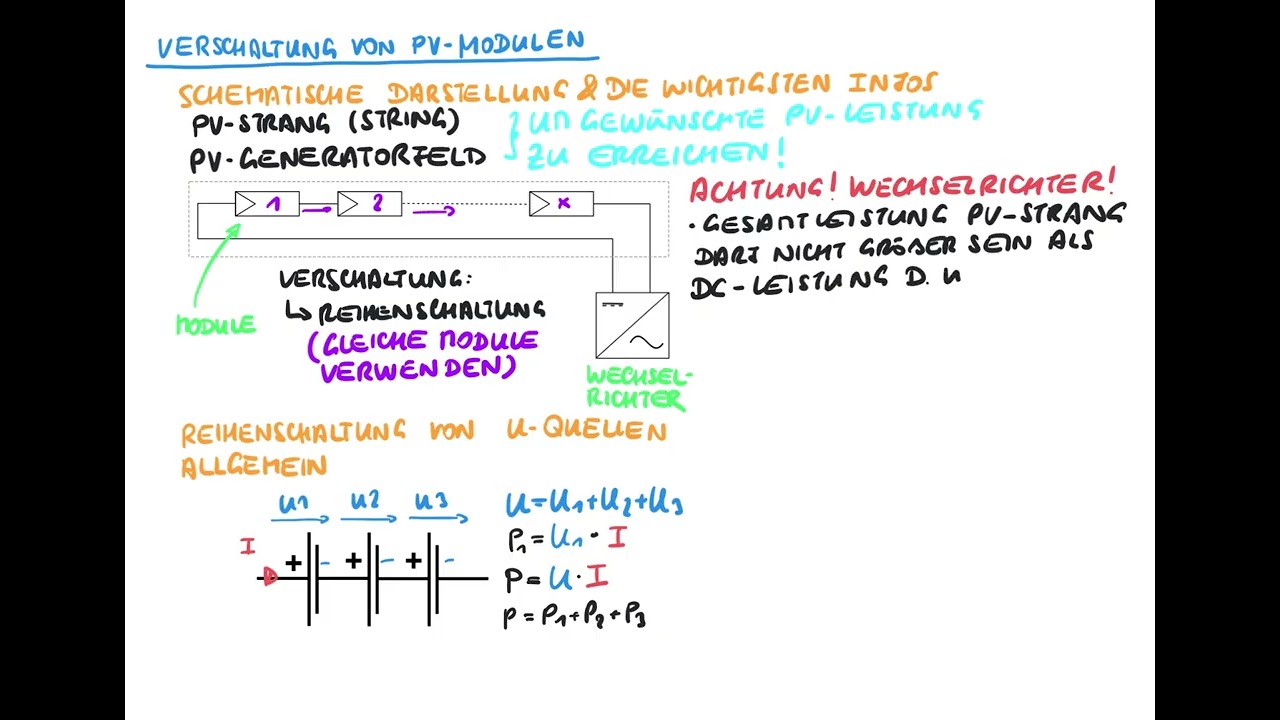 VERSCHALTUNG VON PV-MODULEN
SCHEMATISCHE DARSTELLUNG & DIE WICHTIGSTEN INFOS
PV-STRANG (STRING)
PV-GENERATORFELD
UM GEWÜNSCHTE PV-LEISTUNG
ZU ERREICHEN!
1 2 x
MODULE
VERSCHALTUNG:
↳ REIHENSCHALTUNG
(GLEICHE MODULE
VERWENDEN)
WECHSEL-
RICHTER
ACHTUNG! WECHSELRICHTER!
• GESAMTLEISTUNG PV-STRANG
DARF NICHT GRÖßER SEIN ALS
DC-LEISTUNG D. W
REIHENSCHALTUNG VON U-QUELLEN
ALLGEMEIN
U1 U2 U3
I
+ - + - + -
U=U1+U2+U3
P1=U1·I
P=U·I
P=P1+P2+P3